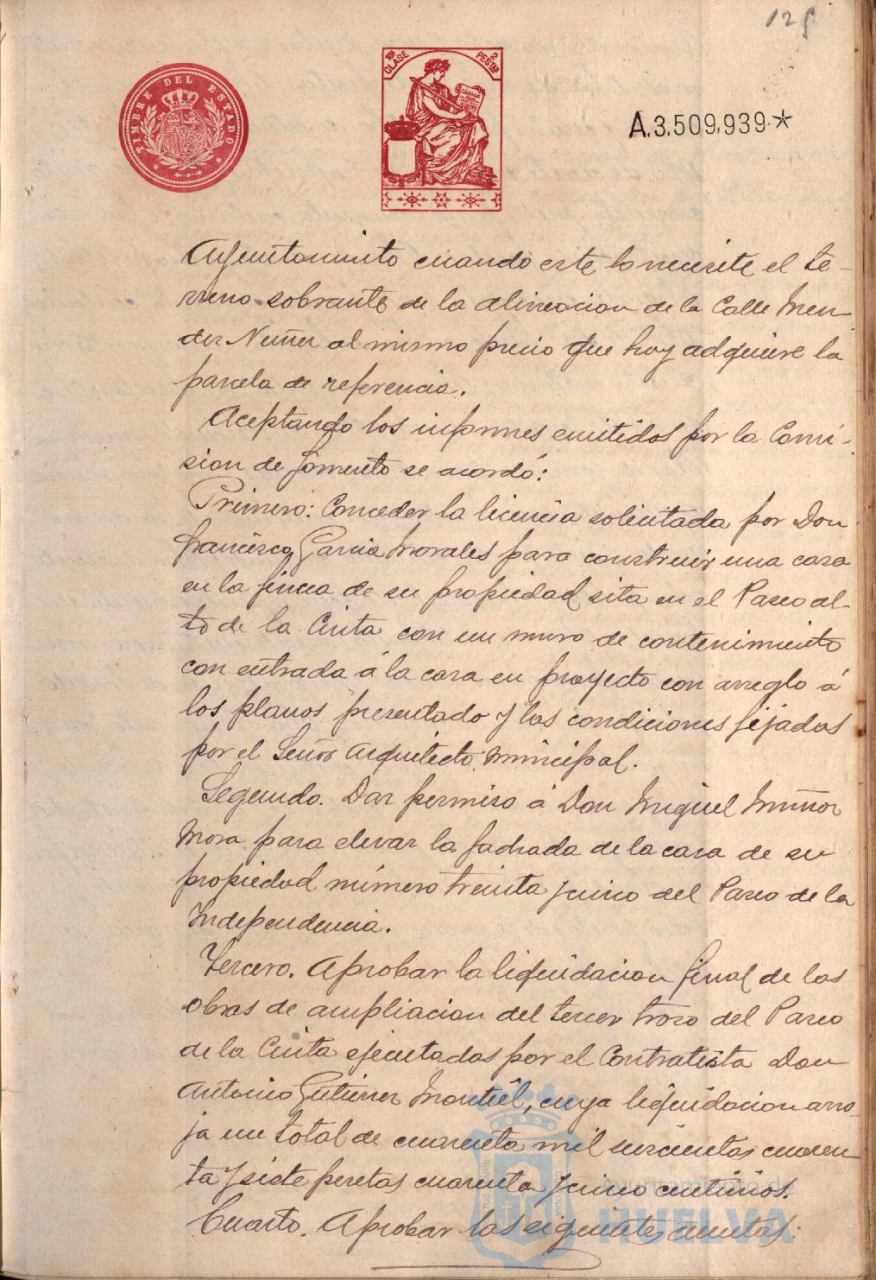 125
TIMBRE DEL ESTADO
10ª CLASE
2 PESTAS
A.3.509,939.*
Ayuntamiento cuando este lo necesite el te-
rreno sobrante de la alineacion de la Calle Men
dez Nuñez al mismo precio que hoy adquiere la
parcela de referencia.
Aceptando los informes emitidos por la Comi-
sion de fomento se acordó:
Primero: Conceder la licencia solicitada por Don
francisco Garcia Morales para construir una casa
en la finca de su propiedad sita en el Paseo al-
to de la Cinta con un muro de contenimiento
con entrada á la casa en proyecto con arreglo á
los planos presentado y las condiciones fijadas
por el Señor Arquitecto municipal.
Segundo. Dar permiso á Don Miguel Muñoz
Mora para elevar la fachada de la casa de su
propiedad número treinta y cinco del Paseo de la
Independencia.
Tercero. Aprobar la liquidacion final de las
obras de ampliacion del tercer trozo del Paseo
de la Cinta ejecutadas por el Contratista Don
Antonio Gutierrez Montiel, cuya liquidacion arro
ja un total de cuarenta mil seiscientas cuaren
ta y siete pesetas cuarenta y cinco centimos.
Cuarto. Aprobar las siguientes cuentas:
Ayuntamiento de
HUELVA